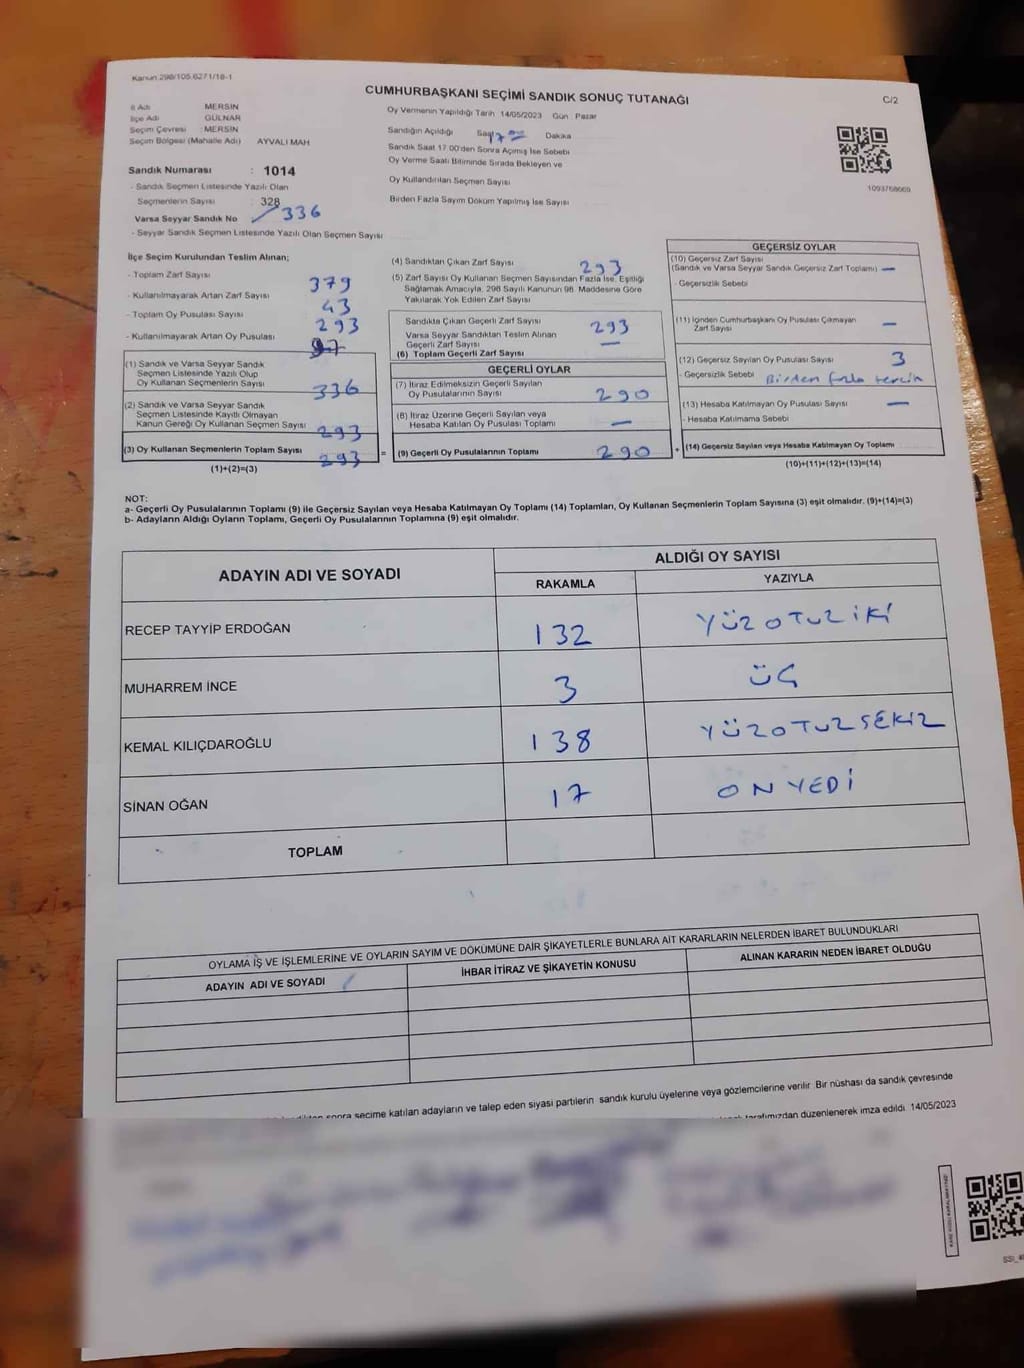 Kanun 298/105,6271/18-1
CUMHURBAŞKANI SEÇİMİ SANDIK SONUÇ TUTANAĞI
C/2
İl Adı MERSİN
İlçe Adı GÜLNAR
Seçim Çevresi : MERSİN
Seçim Bölgesi (Mahalle Adı) AYVALI MAH
Sandık Numarası : 1014
- Sandık Seçmen Listesinde Yazılı Olan
Seçmenlerin Sayısı : 328
336
Varsa Seyyar Sandık No
- Seyyar Sandık Seçmen Listesinde Yazılı Olan Seçmen Sayısı
Oy Vermenin Yapıldığı Tarih 14/05/2023 Gün : Pazar
Sandığın Açıldığı Saat 17 00 Dakika
Sandık Saat 17.00'den Sonra Açımış İse Sebebi
Oy Verme Saati Bitiminde Sırada Bekleyen ve
Oy Kullandırılan Seçmen Sayısı
Birden Fazla Sayım Döküm Yapılmış İse Sayısı
1093768669
İlçe Seçim Kurulundan Teslim Alınan;
- Toplam Zarf Sayısı 379
- Kullanılmayarak Artan Zarf Sayısı 43
- Toplam Oy Pusulası Sayısı 293
- Kullanılmayarak Artan Oy Pusulası
(1) Sandık ve Varsa Seyyar Sandık
Seçmen Listesinde Yazılı Olup
Oy Kullanan Seçmenlerin Sayısı 336
(2) Sandık ve Varsa Seyyar Sandık
Seçmen Listesinde Kayıtlı Olmayan
Kanun Gereği Oy Kullanan Seçmen Sayısı 293
(3) Oy Kullanan Seçmenlerin Toplam Sayısı 293
(1)+(2)=(3)
(4) Sandıktan Çıkan Zarf Sayısı 293
(5) Zarf Sayısı Oy Kullanan Seçmen Sayısından Fazla İse, Eşitliği
Sağlamak Amacıyla, 298 Sayılı Kanunun 98. Maddesine Göre
Yakılarak Yok Edilen Zarf Sayısı
Sandıkta Çıkan Geçerli Zarf Sayısı 293
Varsa Seyyar Sandıktan Teslim Alınan
Geçerli Zarf Sayısı —
(6) Toplam Geçerli Zarf Sayısı
GEÇERLİ OYLAR
(7) İtiraz Edilmeksizin Geçerli Sayılan
Oy Pusulalarının Sayısı 290
(8) İtiraz Üzerine Geçerli Sayılan veya
Hesaba Katılan Oy Pusulası Toplamı —
= (9) Geçerli Oy Pusulalarının Toplamı 290
GEÇERSİZ OYLAR
(10) Geçersiz Zarf Sayısı
(Sandık ve Varsa Seyyar Sandık Geçersiz Zarf Toplamı) —
- Geçersizlik Sebebi
(11) İçinden Cumhurbaşkanı Oy Pusulası Çıkmayan
Zarf Sayısı —
(12) Geçersiz Sayılan Oy Pusulası Sayısı 3
- Geçersizlik Sebebi Birden fazla tercih
(13) Hesaba Katılmayan Oy Pusulası Sayısı —
- Hesaba Katılmama Sebebi
+ (14) Geçersiz Sayılan veya Hesaba Katılmayan Oy Toplamı
(10)+(11)+(12)+(13)=(14)
NOT:
a- Geçerli Oy Pusulalarının Toplamı (9) ile Geçersiz Sayılan veya Hesaba Katılmayan Oy Toplamı (14) Toplamları, Oy Kullanan Seçmenlerin Toplam Sayısına (3) eşit olmalıdır. (9)+(14)=(3)
b- Adayların Aldığı Oyların Toplamı, Geçerli Oy Pusulalarının Toplamına (9) eşit olmalıdır.
ADAYIN ADI VE SOYADI
ALDIĞI OY SAYISI
RAKAMLA YAZIYLA
RECEP TAYYİP ERDOĞAN 132 YÜZOTUZİKİ
MUHARREM İNCE 3 ÜÇ
KEMAL KILIÇDAROĞLU 138 YÜZOTUZSEKİZ
SİNAN OĞAN 17 ONYEDİ
TOPLAM
OYLAMA İŞ VE İŞLEMLERİNE VE OYLARIN SAYIM VE DÖKÜMÜNE DAİR ŞİKAYETLERLE BUNLARA AİT KARARLARIN NELERDEN İBARET BULUNDUKLARI
ADAYIN ADI VE SOYADI İHBAR İTİRAZ VE ŞİKAYETİN KONUSU ALINAN KARARIN NEDEN İBARET OLDUĞU
sonra seçime katılan adayların ve talep eden siyasi partilerin sandık kurulu üyelerine veya gözlemcilerine verilir. Bir nüshası da sandık çevresinde
tarafımızdan düzenlenerek imza edildi. 14/05/2023